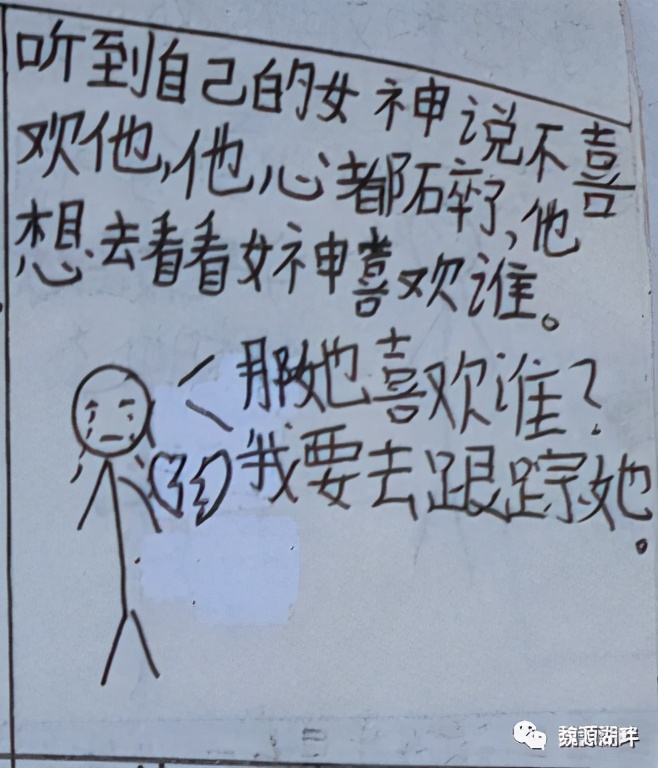 听到自己的女神说不喜
欢他,他心都碎了,他
想去看看女神喜欢谁。
那她喜欢谁?
我要去跟踪她。
魏源湖畔